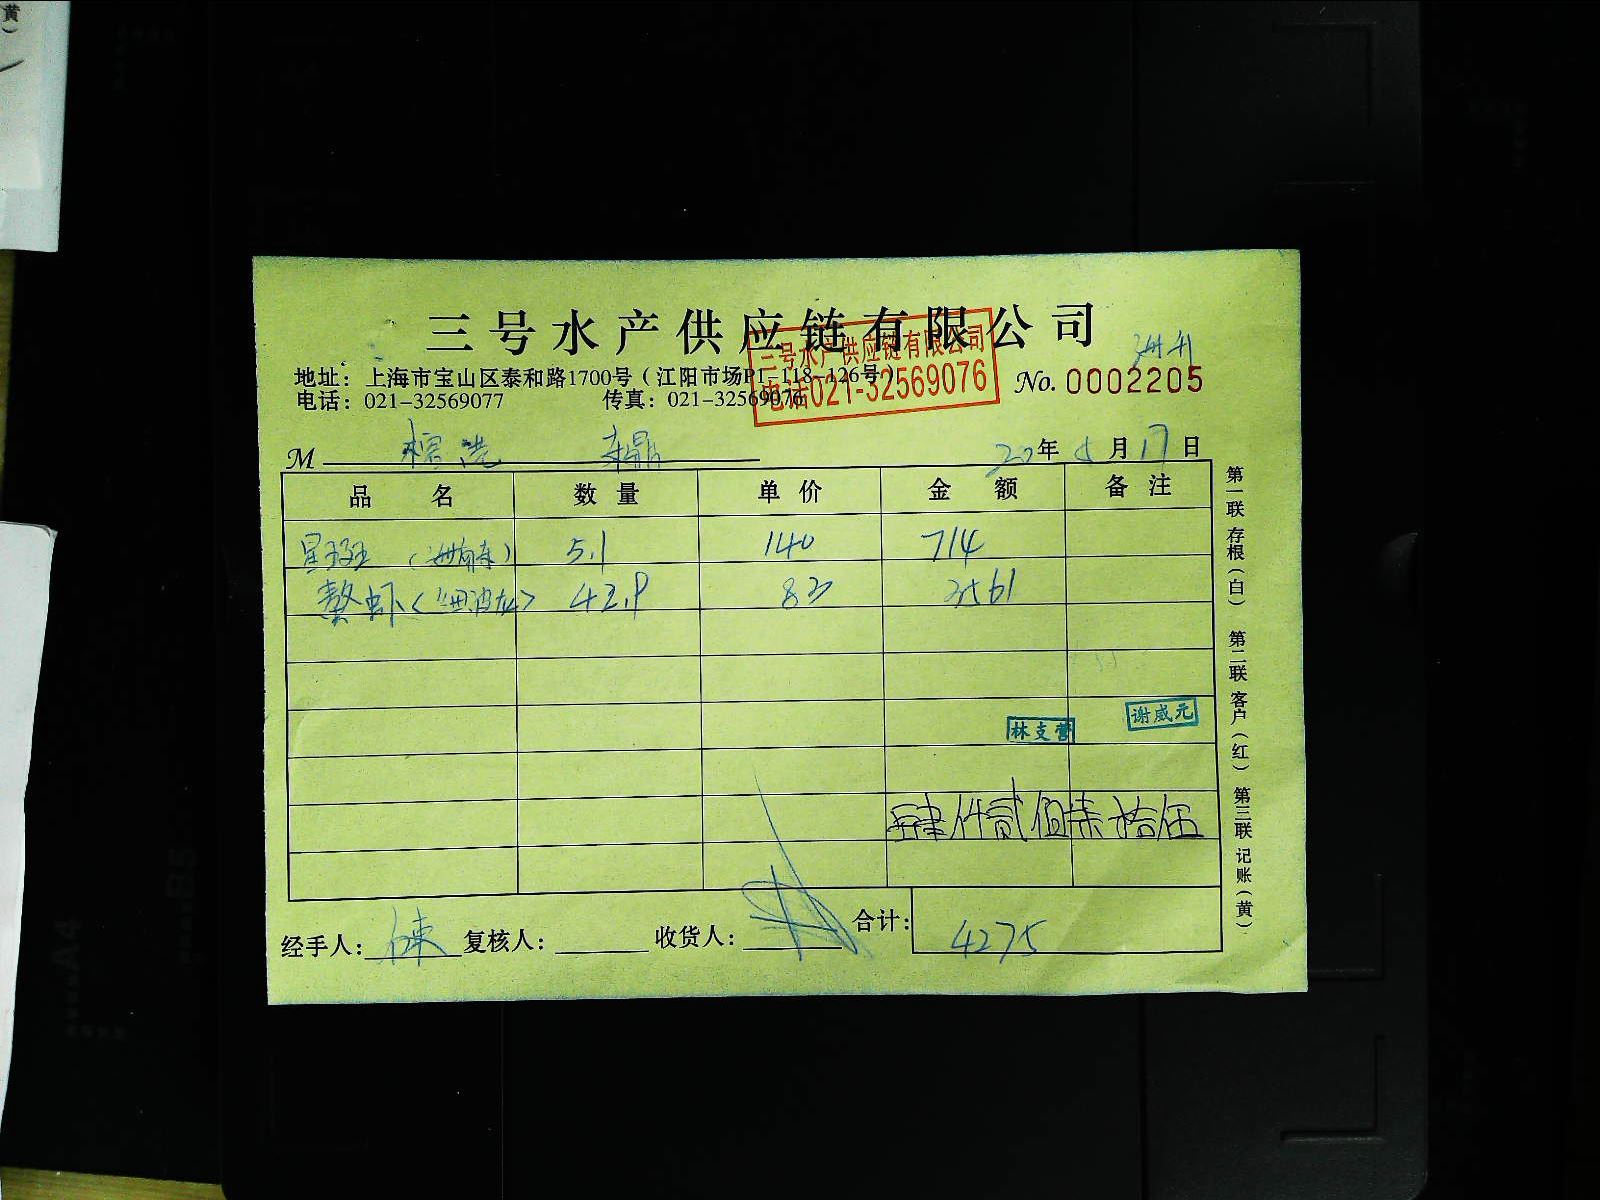 黄
）
三号水产供应链有限公司
三号水产供应链有限公司
电话021-32569076
地址：上海市宝山区泰和路1700号（江阳市场P1-118-126号）
电话：021-32569077 传真：021-32569076
No. 0002205
M
20年5月17日
品名 数量 单价 金额 备注
星斑 5.1 140 714
螯虾 42.9 83 3561
林支营 谢威元
肆仟贰佰柒拾伍
经手人： 复核人： 收货人： 合计： 4275
第一联 存根（白） 第二联 客户（红） 第三联 记账（黄）
A4
B5